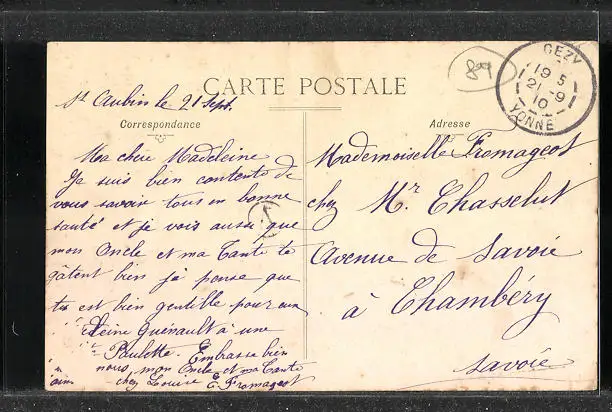 89
GEZY
19 5
21 -9
10
YONNE
CARTE POSTALE
St Aubin le 21 Sept.
Correspondance
Adresse
Ma chère Madeleine
Je suis bien contente de
vous savoir tous en bonne
santé et je vois aussi que
mon Oncle et ma Tante te
gâtent bien je pense que
tu es bien gentille pour eux
Reine Guénault à une
Paulette. Embrasse bien
nous, mon Oncle et ma Tante
chez Louise E. Fromageot
Mademoiselle Fromageot
chez Mr Chasselut
Avenue de Savoie
à Chambéry
Savoie